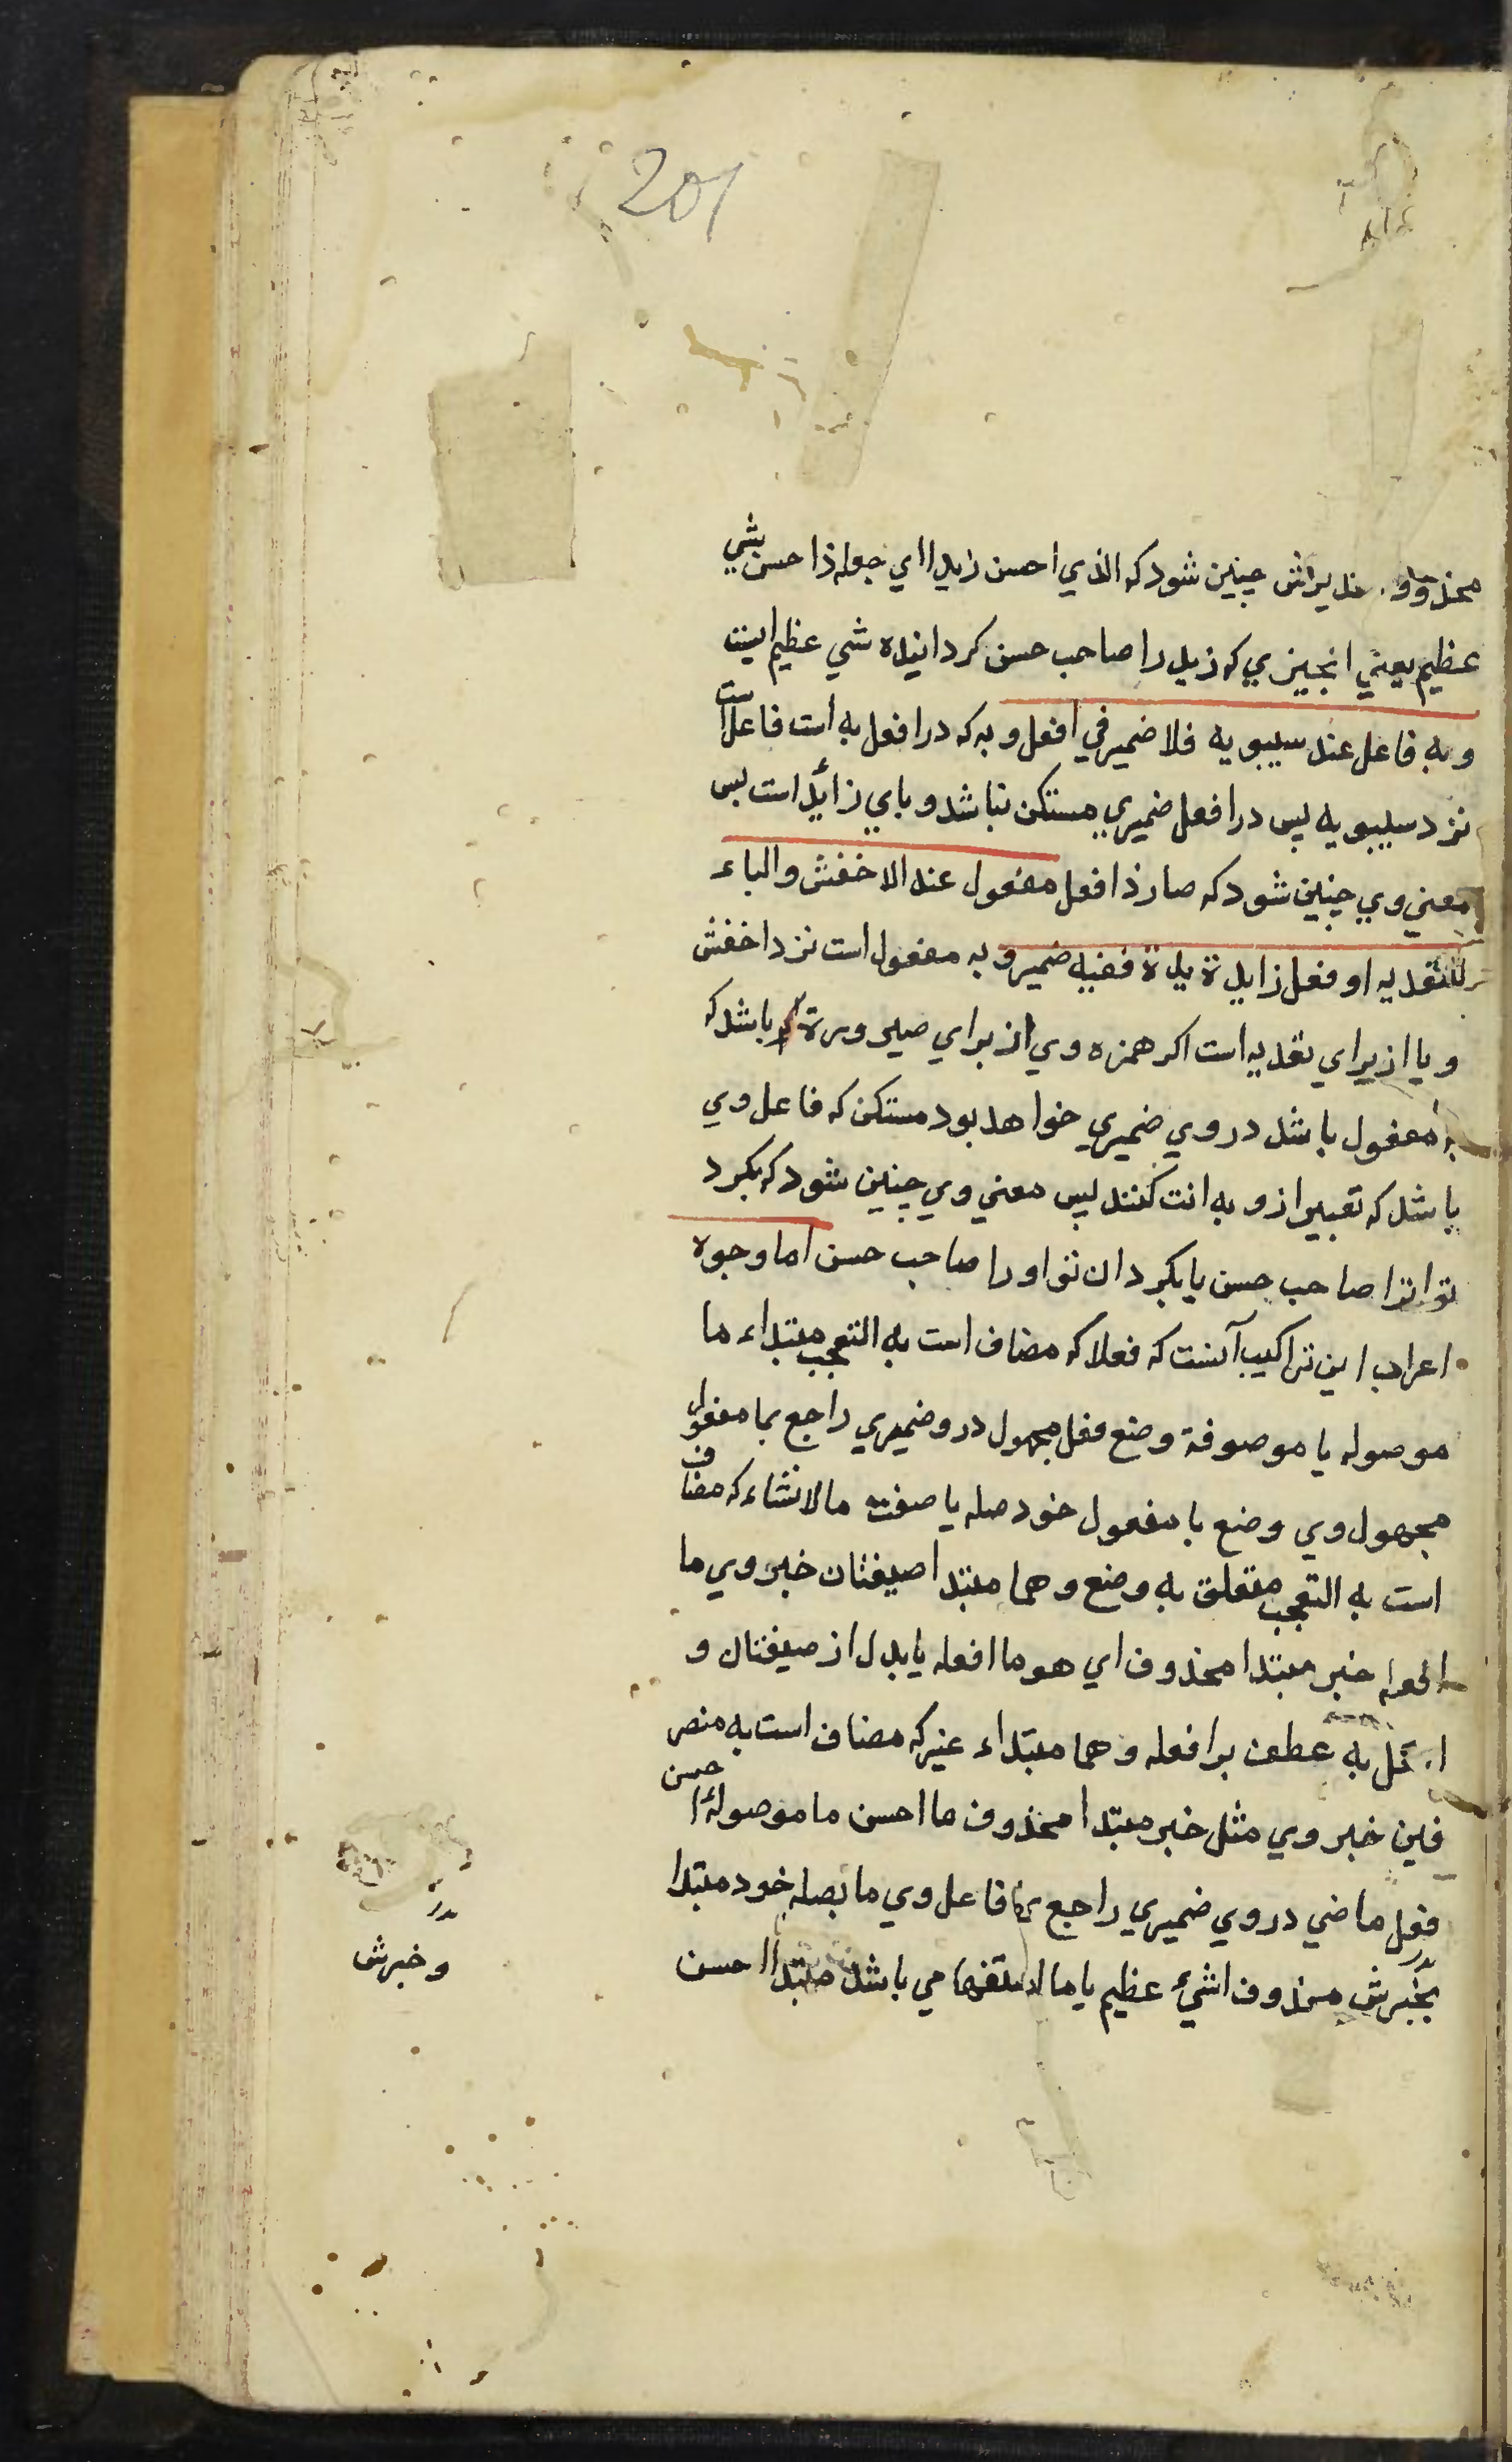 201
محذوف تقديرش جنين شود که الذي احسن زيدا اي جعله ذا حسن شي
عظيم يعني انجيزي که زيد را صاحب حسن کردانيده شي عظيم اينت
وبه فاعل عند سيبويه فلا ضمير في افعل وبه که در افعل به است فاعلاست
نزد سيبويه پس در افعل ضميري مستکن نباشد و باي زائد است پس
معني وي جنين شود که صار ذا فعل مفعول عند الاخفش والباء
للتعديه او فعل زايدة ففيه ضمير و به مفعول است نزد اخفش
و يا از براي تعديه است اکر همزه وي از براي صيرورة باشد که
به مفعول باشد در وي ضميري خواهد بود مستکن که فاعل وي
باشد که تعبير ازو به انت کنند پس معني وي چنين شود که بکرد
تو انرا صاحب حسن يا بکردان تو اورا صاحب حسن اما وجوه
اعراب اين تراکيب آنست که فعلا که مضاف است به التعجب مبتداء ما
موصوله يا موصوفة وضع فعل مجهول درو ضميري راجع بما مفعول
مجهول وي وضع با مفعول خود صله يا صفت ما لانشاء که مضاف
است به التعجب متعلق به وضع وهما مبتدا صيغتان خبر وي ما
افعله خبر مبتدا محذوف اي هو ما افعله يا بدل از صيغتان و
به عطف بر افعله وهما مبتداء غير که مضاف است به متصر
فين خبر وي مثل خبر مبتدا محذوف ما احسن ما موصولة احسن
فعل ماضي در وي ضميري راجع بما فاعل وي ما بصله خود مبتدا
خبرش محذوف اشيء عظيم يا ما استفهامي باشد مبتدا احسن
وخبرش